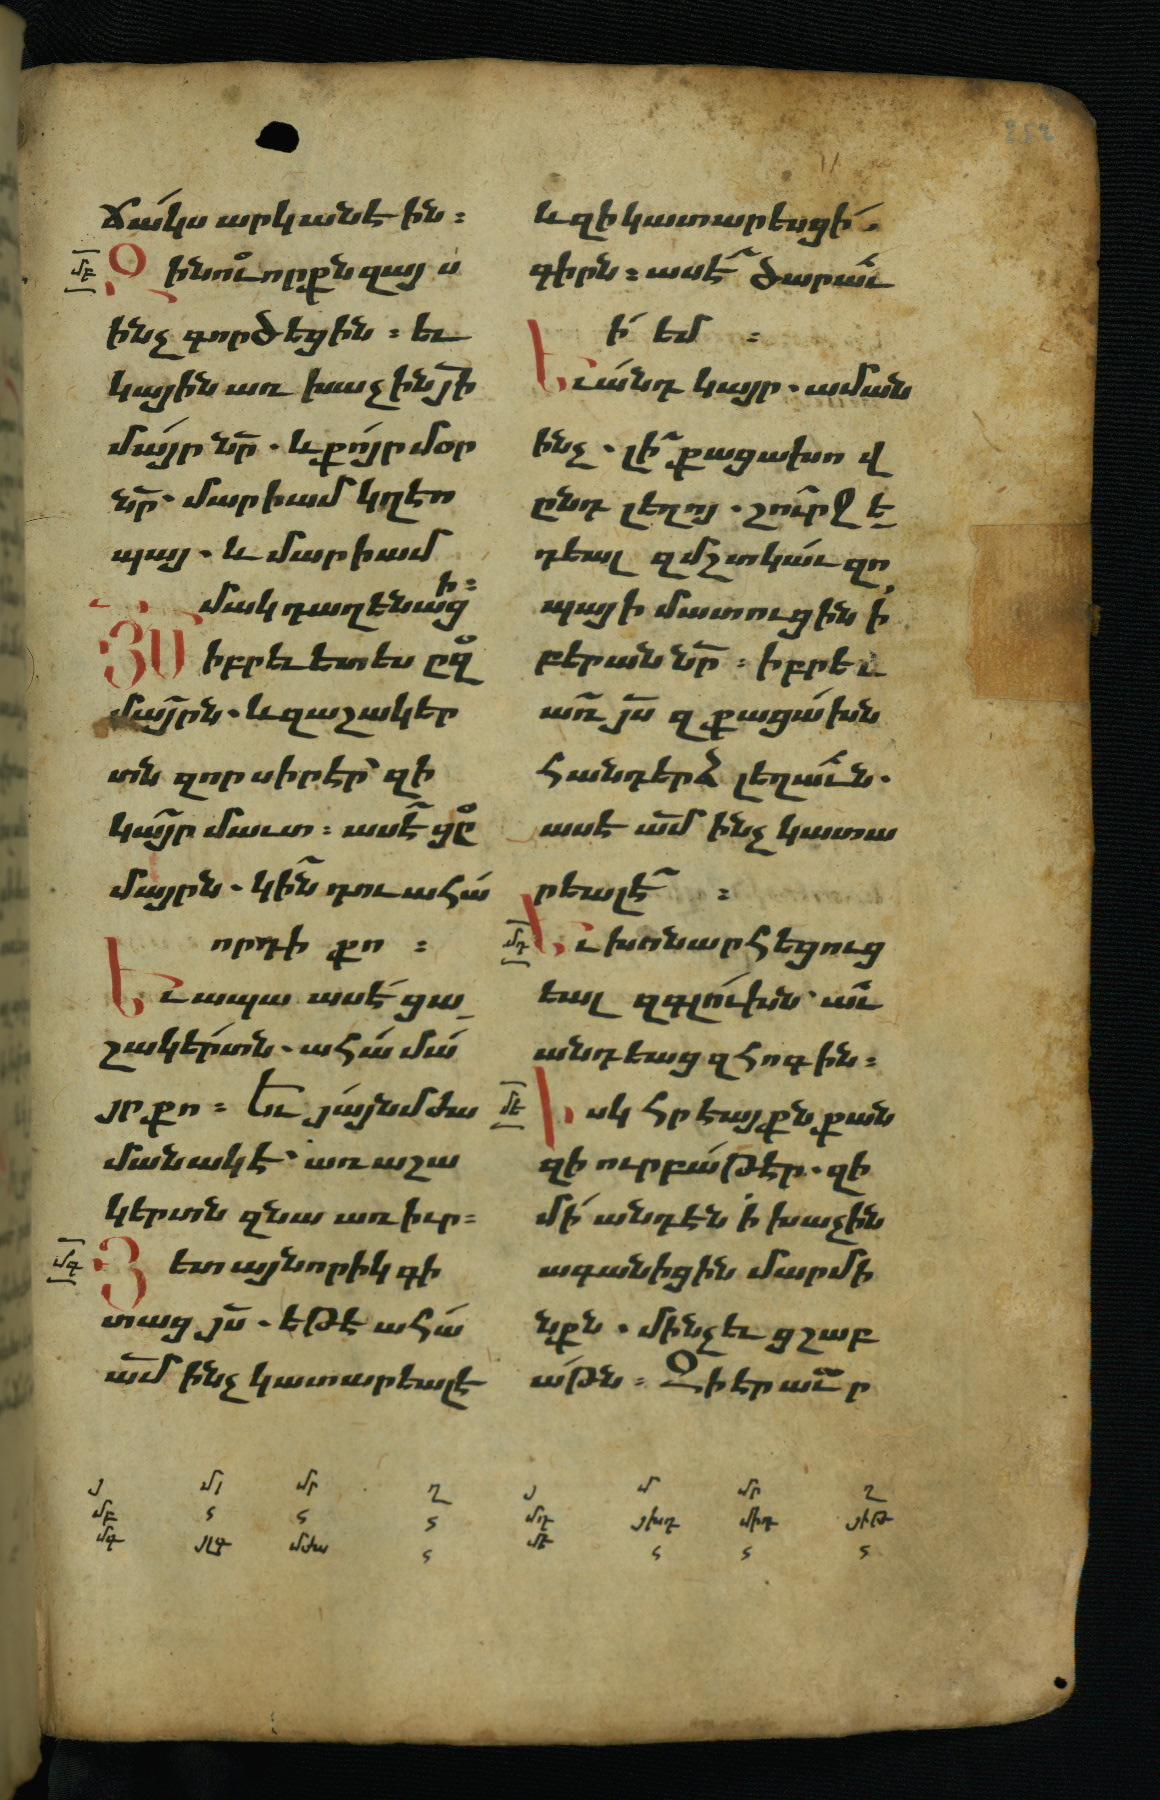 ճակս արկանէին։
մբ Զինուորքն զայս
ինչ գործեցին։ եւ
կային առ խաչին յի
մայր նր. և քոյր մօր
նր. մարիամ կղէո
պայ. և մարիամ
մակդաղէնացի։
Յս իբրեւ ետես ըզ
մայրն. և զաշակեր
տն զոր սիրէր՝ զի
կայր մաւտ։ ասէ ցը
մայրն. կին դու ահա
որդի քո։
Եւ ապա ասէ ցա
շակերտն. ահա մա
յր քո։ Եւ յայնմ ժա
մանակէ՝ առ աշա
կերտն զնա առ իւր։
մգ Յետ այնորիկ գի
տաց յս. եթէ ահա
ամ ինչ կատարեալէ
և զի կատարեսցի
գիրն։ ասէ ծարաւ
ի եմ։
Եւ անդ կայր. աման
ինչ. լի քացախո վ
ընդ լեղոյ. շուրջ ե
դեալ զմշտկաւ զո
պայի մատուցին ի
բերան նր։ իբրեւ
առ յս զքացախն
հանդերձ լեղւաւն.
ասէ ամ ինչ կատա
րեալէ։
մդ Եւ խոնարհեցուց
եալ զգլուխն՝ աւ
անդեաց զհոգին։
մե Իսկ հրէայքն քան
զի ուրբաթէր. զի
մի անդէն ի խաչին
ագանիցին մարմի
նքն. մինչեւ ցշաբ
աթն։ Զի էր աւր